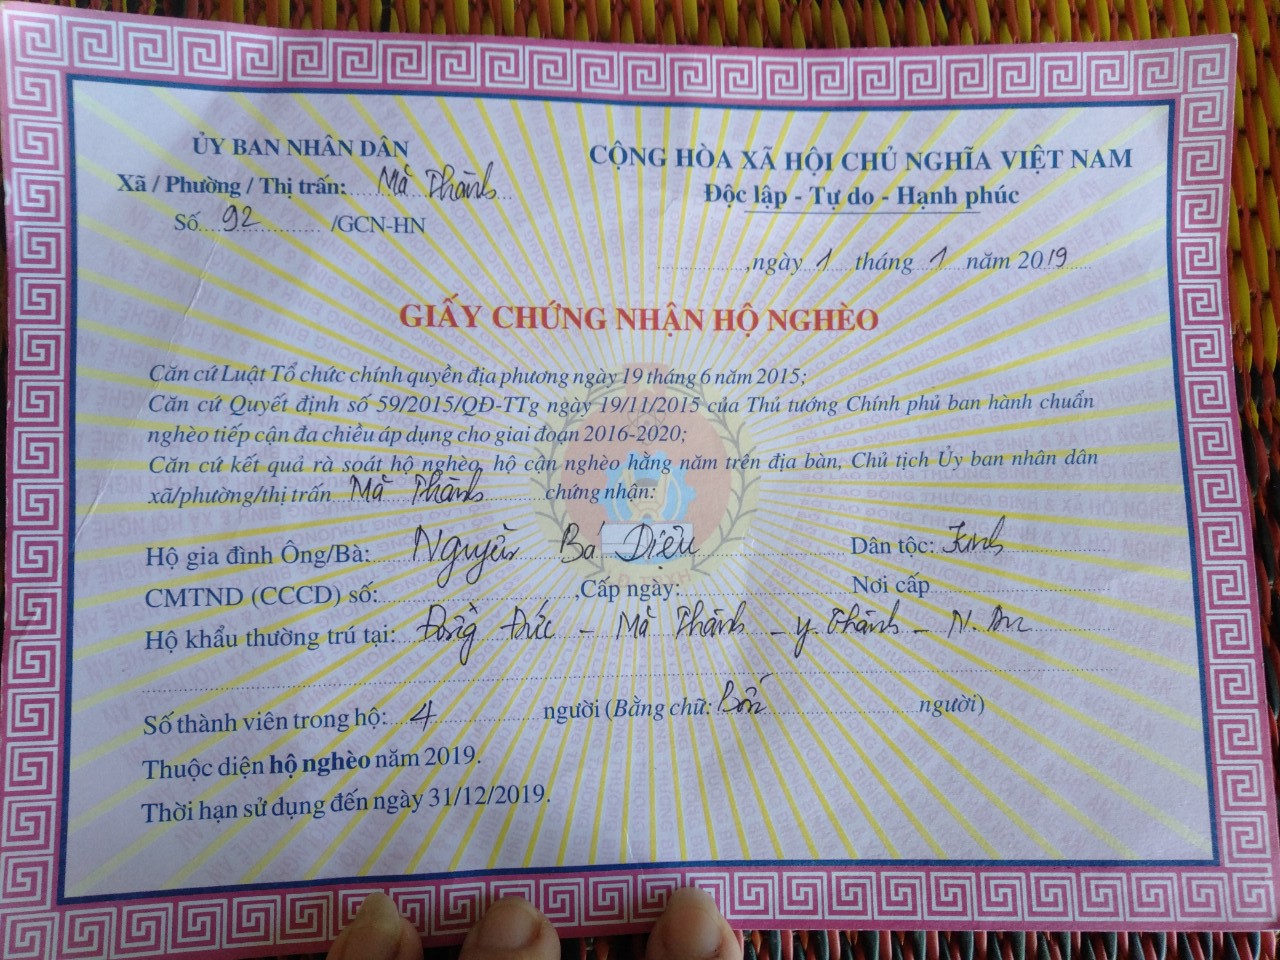 ỦY BAN NHÂN DÂN
Xã / Phường / Thị trấn: Mã Thành
Số 92 /GCN-HN
CỘNG HÒA XÃ HỘI CHỦ NGHĨA VIỆT NAM
Độc lập - Tự do - Hạnh phúc
, ngày 1 tháng 1 năm 2019
GIẤY CHỨNG NHẬN HỘ NGHÈO
Căn cứ Luật Tổ chức chính quyền địa phương ngày 19 tháng 6 năm 2015;
Căn cứ Quyết định số 59/2015/QĐ-TTg ngày 19/11/2015 của Thủ tướng Chính phủ ban hành chuẩn
nghèo tiếp cận đa chiều áp dụng cho giai đoạn 2016-2020;
Căn cứ kết quả rà soát hộ nghèo, hộ cận nghèo hằng năm trên địa bàn, Chủ tịch Ủy ban nhân dân
xã/phường/thị trấn Mã Thành chứng nhận:
Hộ gia đình Ông/Bà: Nguyễn Bá Diệu Dân tộc: Kinh
CMTND (CCCD) số: ,Cấp ngày: Nơi cấp
Hộ khẩu thường trú tại: Đồng Đức - Mã Thành - Y. Thành - N. An
Số thành viên trong hộ: 4 người (Bằng chữ: Bốn người)
Thuộc diện hộ nghèo năm 2019.
Thời hạn sử dụng đến ngày 31/12/2019.